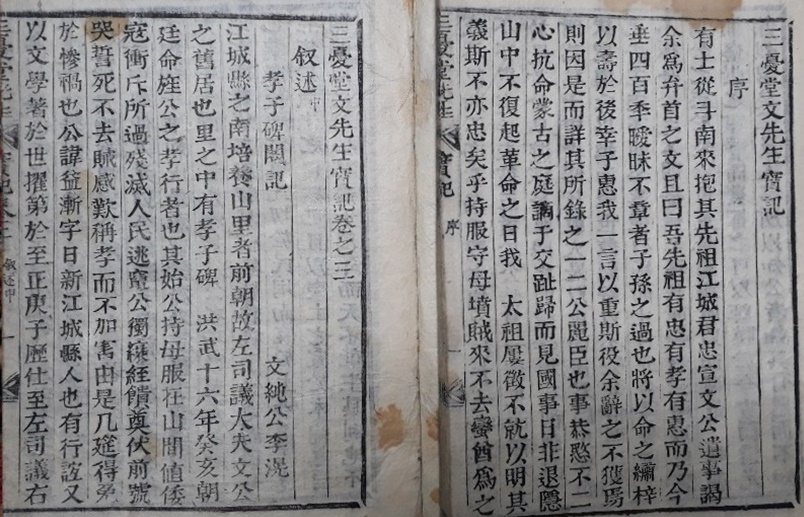 三憂堂文先生實記
序
有士從斗南來抱其先祖江城君忠宣文公遺事謁
余爲弁首之文且曰吾先祖有忠有孝有惠而乃今
垂四百季曖昧不章者子孫之過也將以命之繡梓
以壽於後幸子惠我一言以重斯役余辭之不獲焉
則因是而詳其所錄之一二公麗臣也事恭愍不二
心抗命蒙古之庭謫于交趾歸而見國事日非退隱
山中不復起革命之日我 太祖屢徵不就以明其
義斯不亦忠矣乎持服守母墳賊來不去蠻酋爲之
三憂堂先生 實記 序 一
三憂堂文先生實記卷之三
叙述中
孝子碑閣記
文純公李滉
江城縣之南培養山里者前朝故左司議大夫文公
之舊居也里之中有孝子碑 洪武十六年癸亥朝
廷命旌公之孝行者也其始公持母服在山間值倭
寇衝斥所過殘滅人民逃竄公獨縗絰饋奠伏前號
哭誓死不去賊感歎稱孝而不加害由是几筵得免
於慘禍也公諱益漸字日新江城縣人也有行誼又
以文學著於世擢第於至正庚子歷仕至左司議右
三憂堂先生 實記卷三 叙述中 一